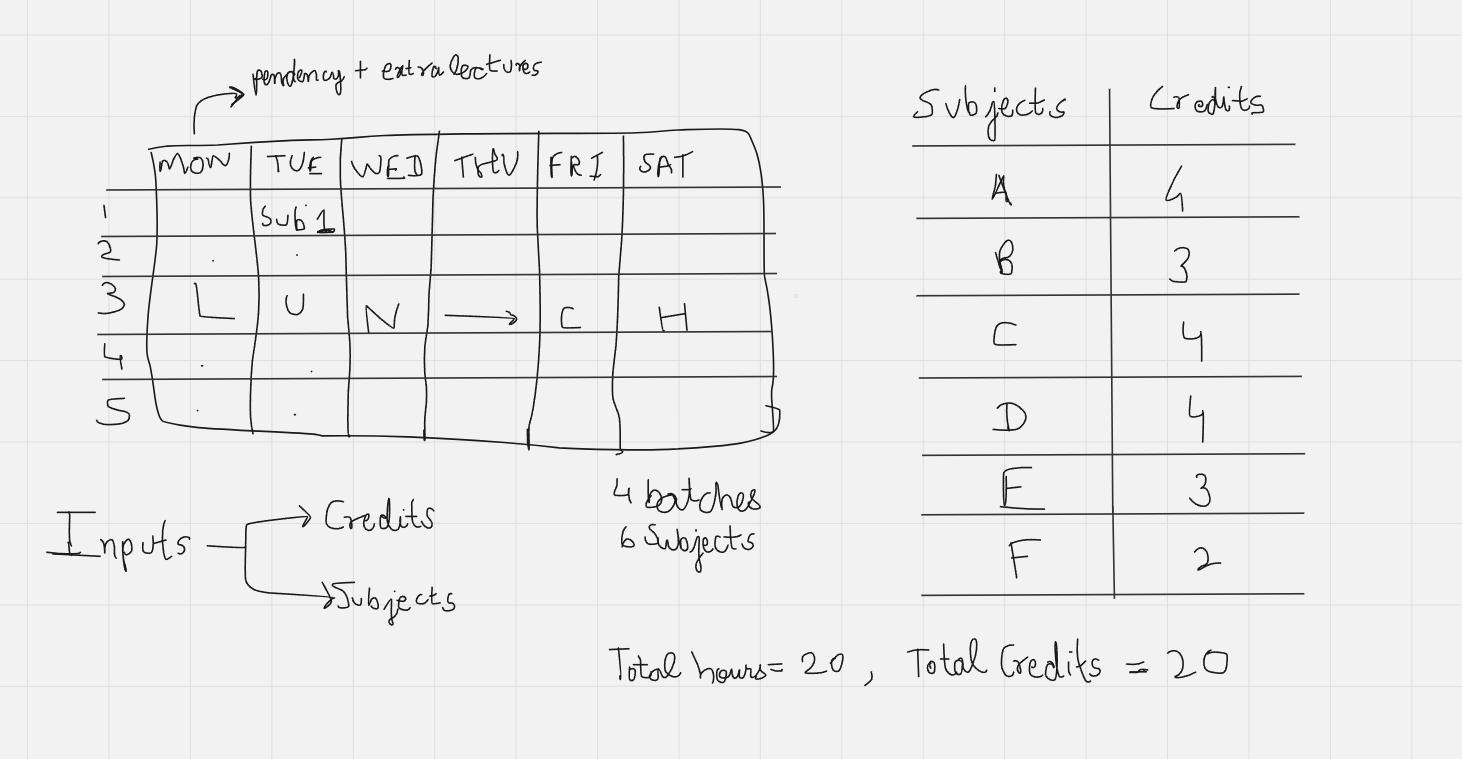 pendency + extra lectures
MON TUE WED THU FRI SAT
1 Sub 1
2
3 L U N → C H
4
5
Inputs
Credits
Subjects
4 batches
6 Subjects
Subjects Credits
A 4
B 3
C 4
D 4
E 3
F 2
Total hours = 20 , Total Credits = 20